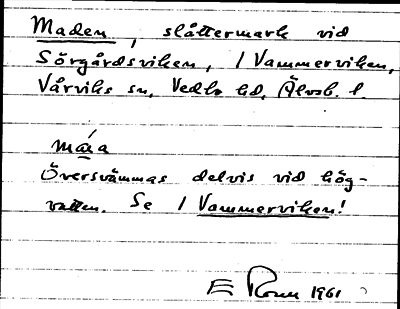 Maden, slåttermark vid
Sörgårdsviken, / Vammerviken,
Vårviks sn, Vedbo hd, Älvsb. l.
måa
Översvämmas delvis vid hög-
vatten. Se / Vammerviken!
E 1961